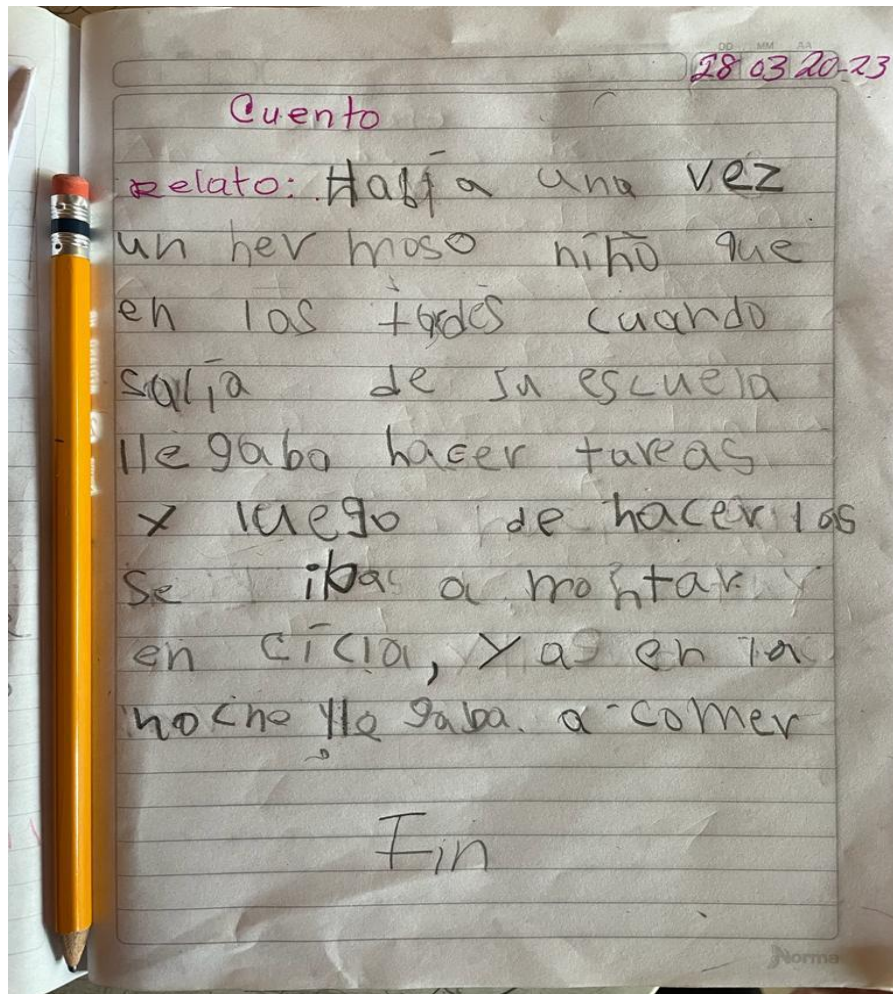 DD MM AA
28 03 20-23
Cuento
Relato: Había una vez
un her moso niño que
en las tardes cuando
salía de su escuela
lle gaba hacer tareas
y luego de hacer las
se iba a montar
en cicla, y as en la
noche lle gaba. a comer
Fin
Norma